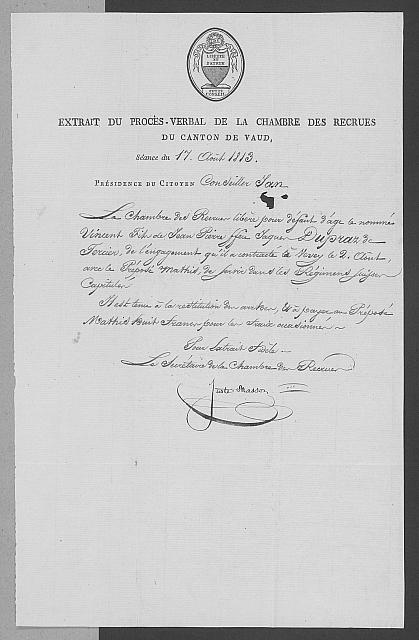 LIBERTÉ
ET
PATRIE
PETIT
CONSEIL
EXTRAIT DU PROCÈS-VERBAL DE LA CHAMBRE DES RECRUES
DU CANTON DE VAUD,
Séance du 17. Août 1813.
PRÉSIDENCE DU CITOYEN Conseiller Jan
La Chambre des Recrues libère pour défaut d'age le nommé
Vincent Fils de Jean Pierre ffeu Jaques Dupraz de
de l'engagement qu'il a contracté à Vevey le 2. Août,
avec le Préposé Mathis, de servir dans les Régimens suisses
Capitulés
Il est tenu à la restitution des arrhes, & à payer au Préposé
Mathis huit Francs pour les fraix occasionnés
Pour Extrait Fidèle
Le Secrétaire de la Chambre des Recrues
Juste Masson